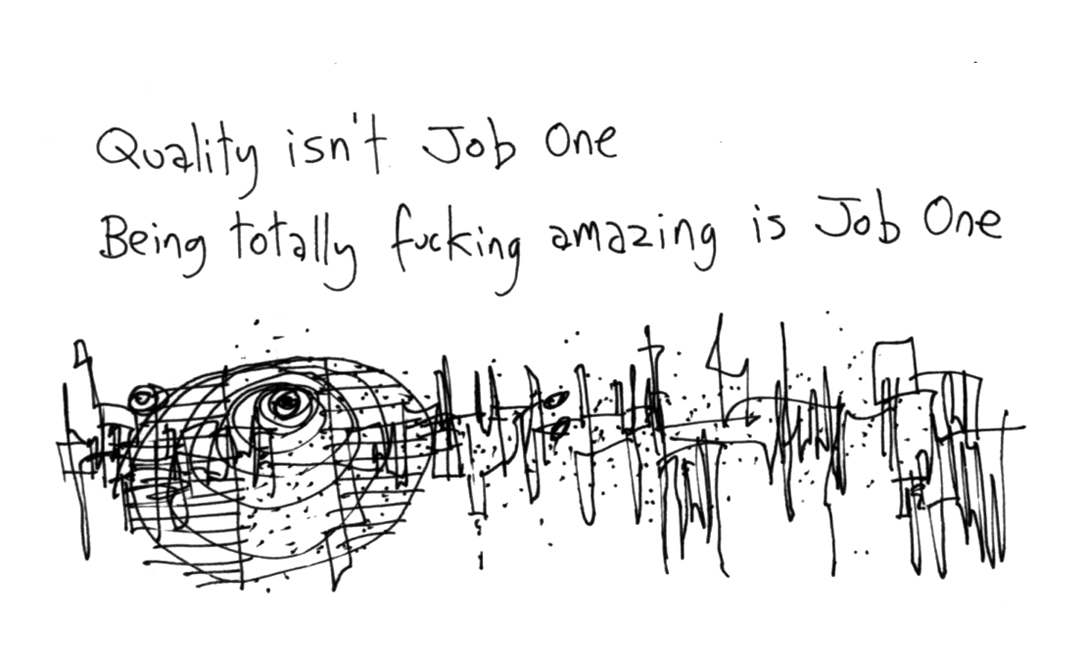 Quality isn't Job One
Being totally fucking amazing is Job One